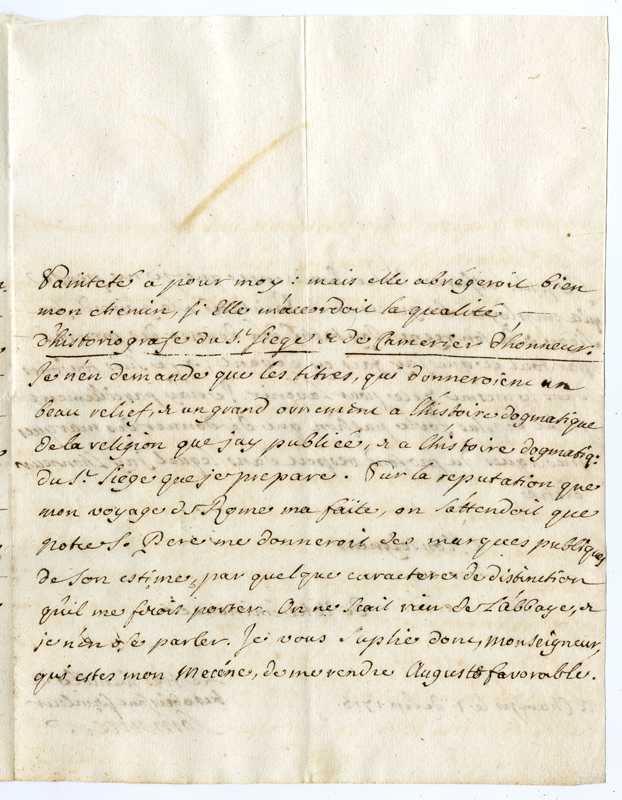 Sainteté a pour moy : mais elle abrégeroit bien
mon chemin, si Elle m'accordoit la qualité
d'historiografe du St. Siege & de Camerier d'honneur.
Je n'en demande que les titres, qui donneroient un
beau relief, & un grand ornement a l'histoire dogmatique
de la religion que j'ay publiée, & a l'histoire dogmatiq:
du St. Siege que je prepare. Sur la reputation que
mon voyage de Rome m'a faite, on s'attendoit que
notre S. Pere me donneroit des marques publiques
de son estime, par quelque caractere de distinction
qu'il me feroit porter. On ne scait rien de L'abbaye, &
je n'en ose parler. Je vous suplie donc, Monseigneur,
qui estes mon Mecéne, de me rendre Auguste favorable.